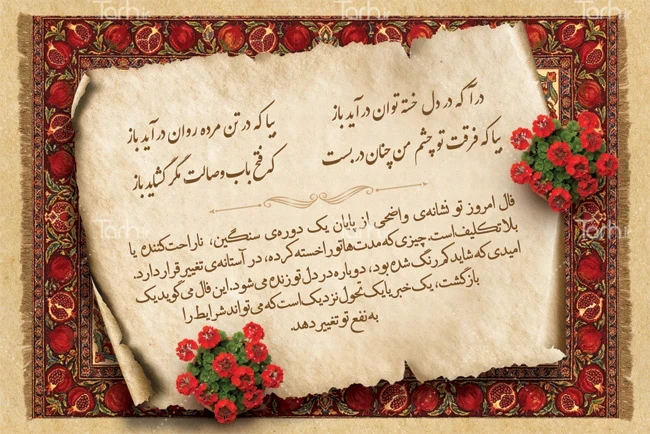 درآ که در دل خسته توان درآید باز
بیا که در تن مرده روان درآید باز
بیا که فرقت تو چشم من چنان در بست
که فتح باب وصالت مگر گشاید باز
فال امروز تو نشانه‌ی واضحی از پایان یک دوره‌ی سنگین، ناراحت‌کننده یا
بلاتکلیف است. چیزی که مدت‌ها تو را خسته کرده، در آستانه‌ی تغییر قرار دارد.
امیدی که شاید کم‌رنگ شده بود، دوباره در دل تو زنده می‌شود. این فال می‌گوید یک
بازگشت، یک خبر یا یک تحول نزدیک است که می‌تواند شرایط را
به نفع تو تغییر دهد.
Tarh.ir
Tarh.ir
Tarh.ir